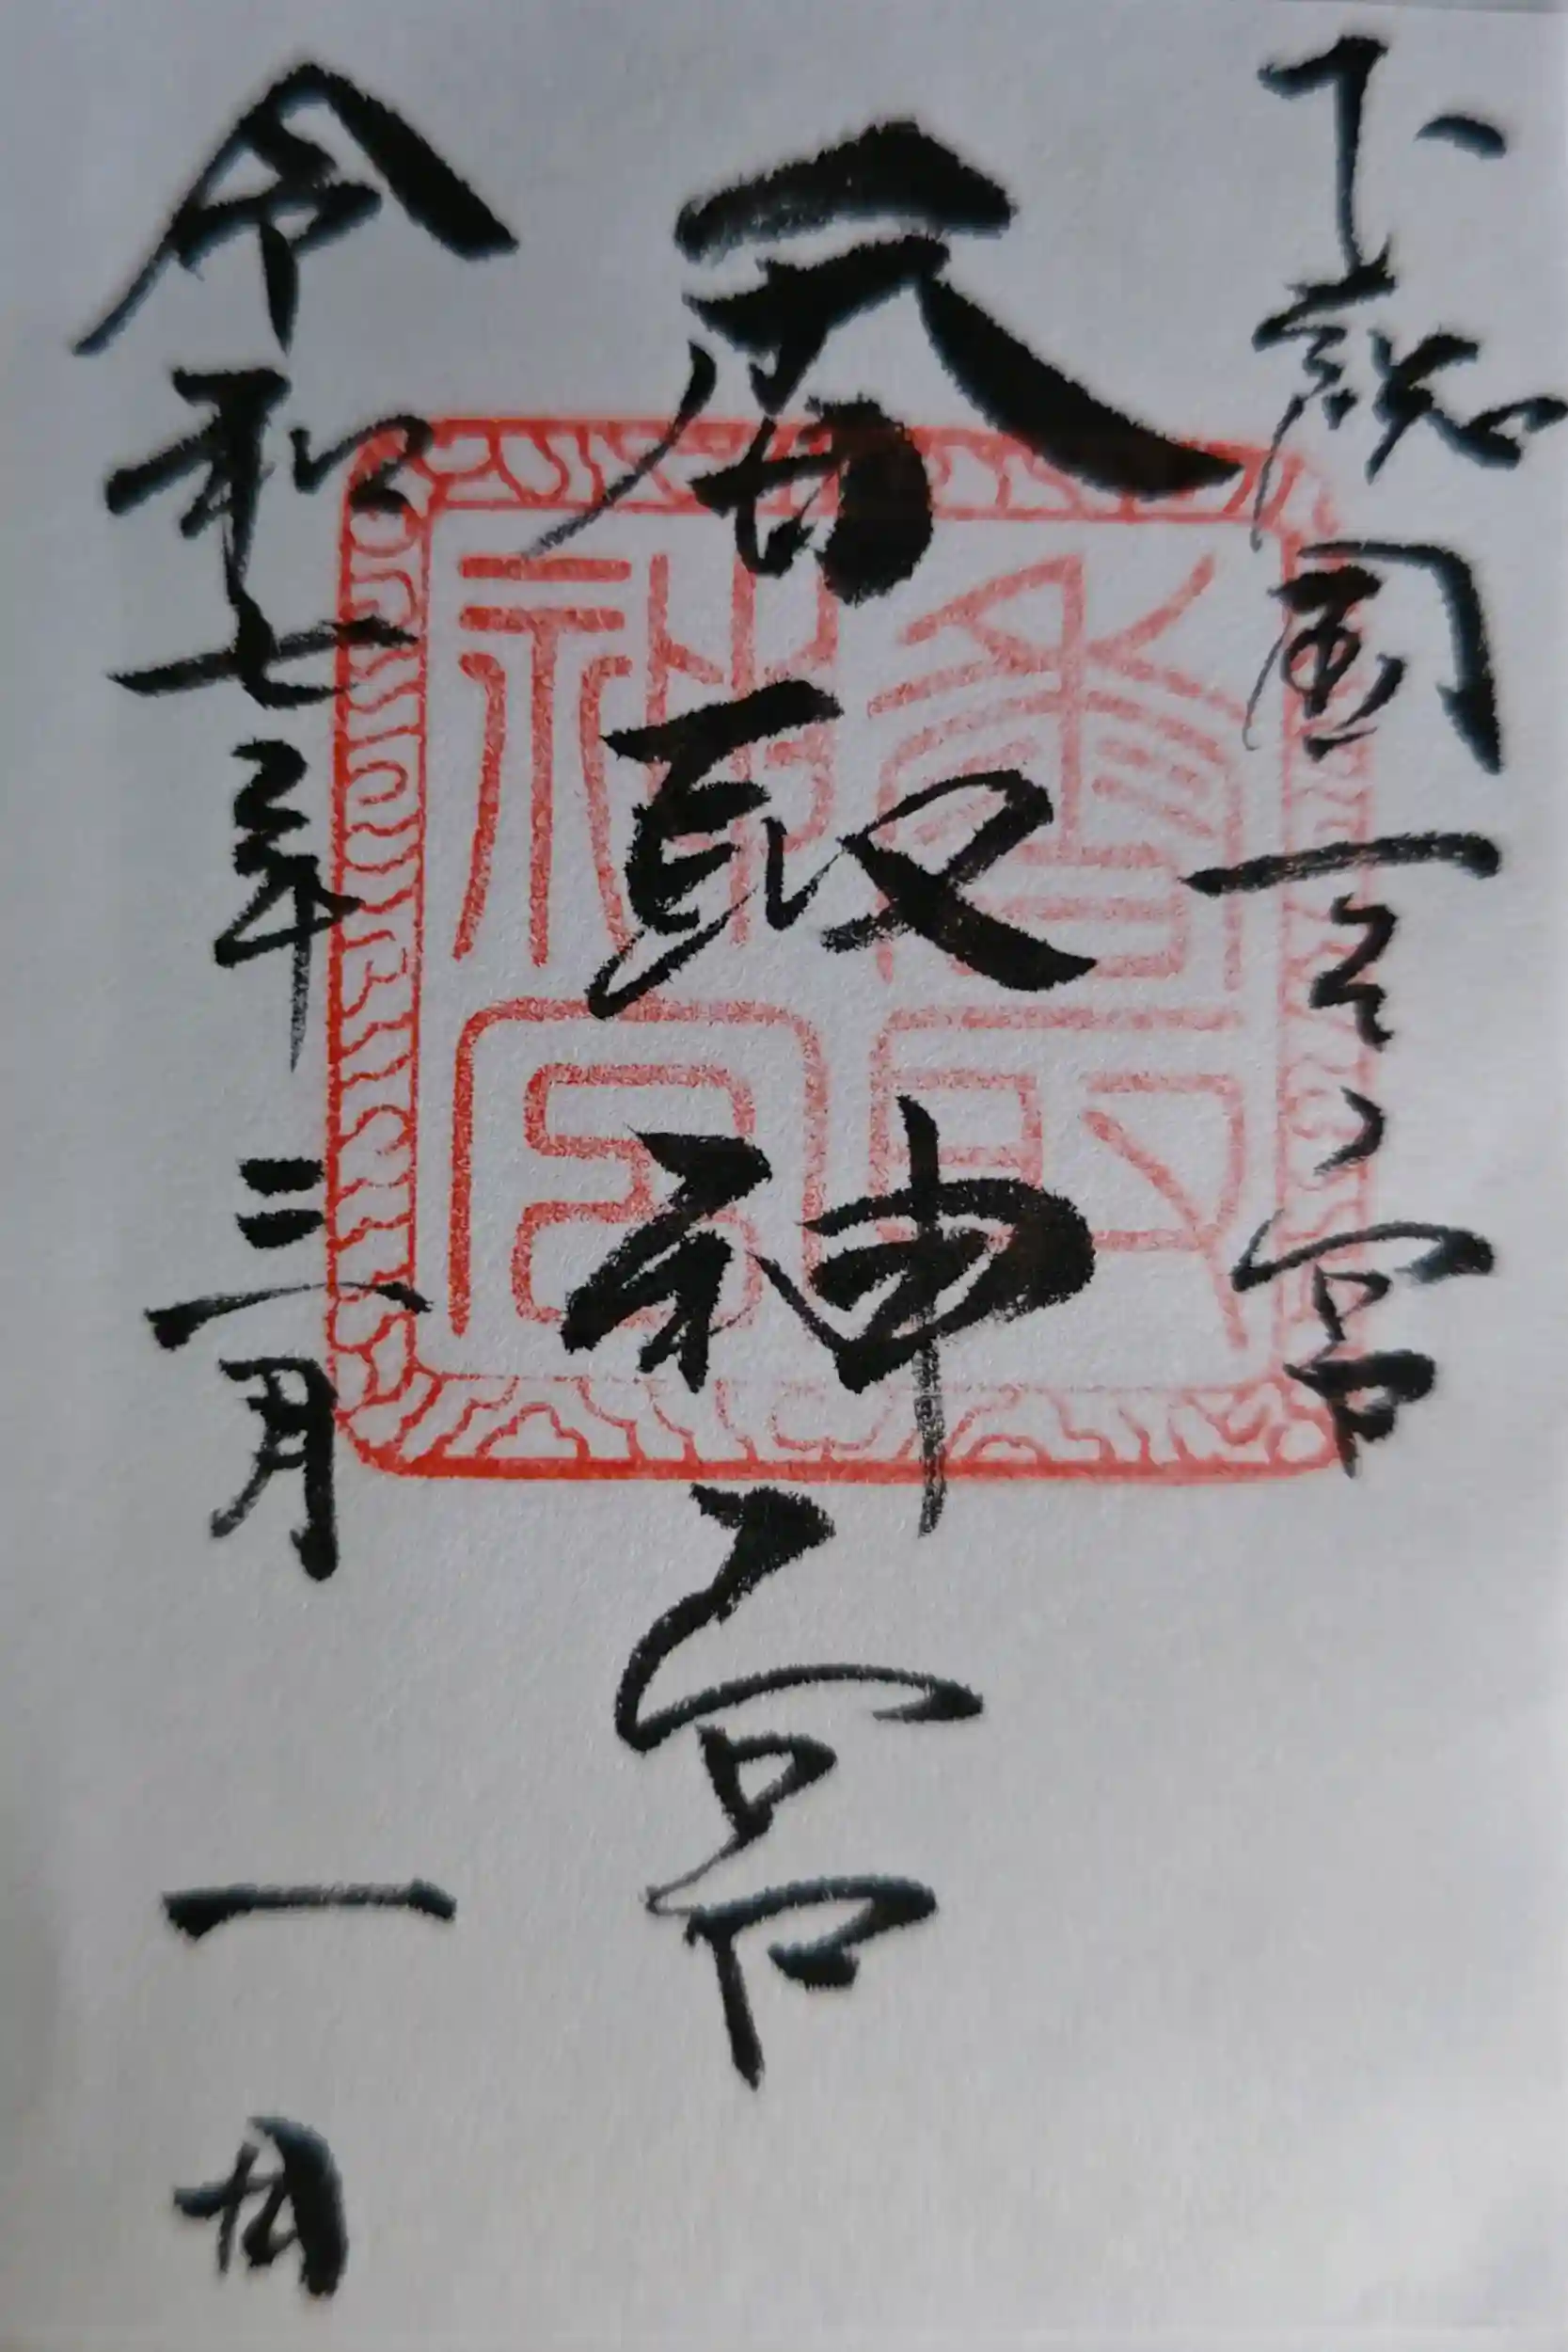 下総國一之宮
香取神宮
令和七年三月一日
香取神宮